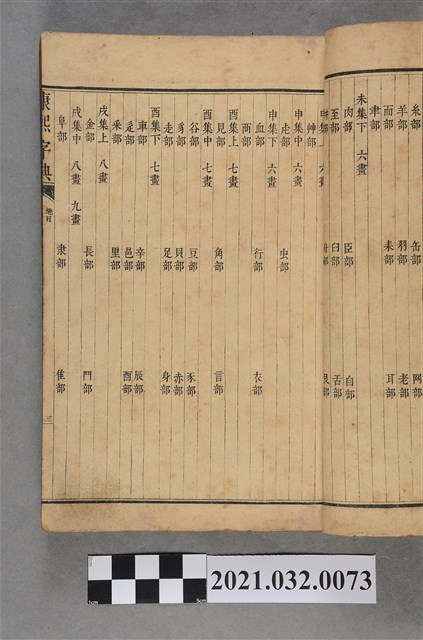 糸部 缶部 网部
羊部 羽部 老部
而部 耒部 耳部
聿部
未集下 六畫
肉部 臣部 自部
至部 臼部 舌部
艸部
申集中 六畫
虍部 虫部
申集下 六畫
血部 行部 衣部
襾部
酉集上 七畫
見部 角部 言部
酉集中 七畫
谷部 豆部 豕部
豸部 貝部 赤部
走部 足部 身部
酉集下 七畫
車部 辛部 辰部
辵部 邑部 酉部
釆部 里部
戌集上 八畫
金部 長部 門部
戌集中 八畫 九畫
阜部 隶部 隹部
康熙字典
總目
三
2021.032.0073